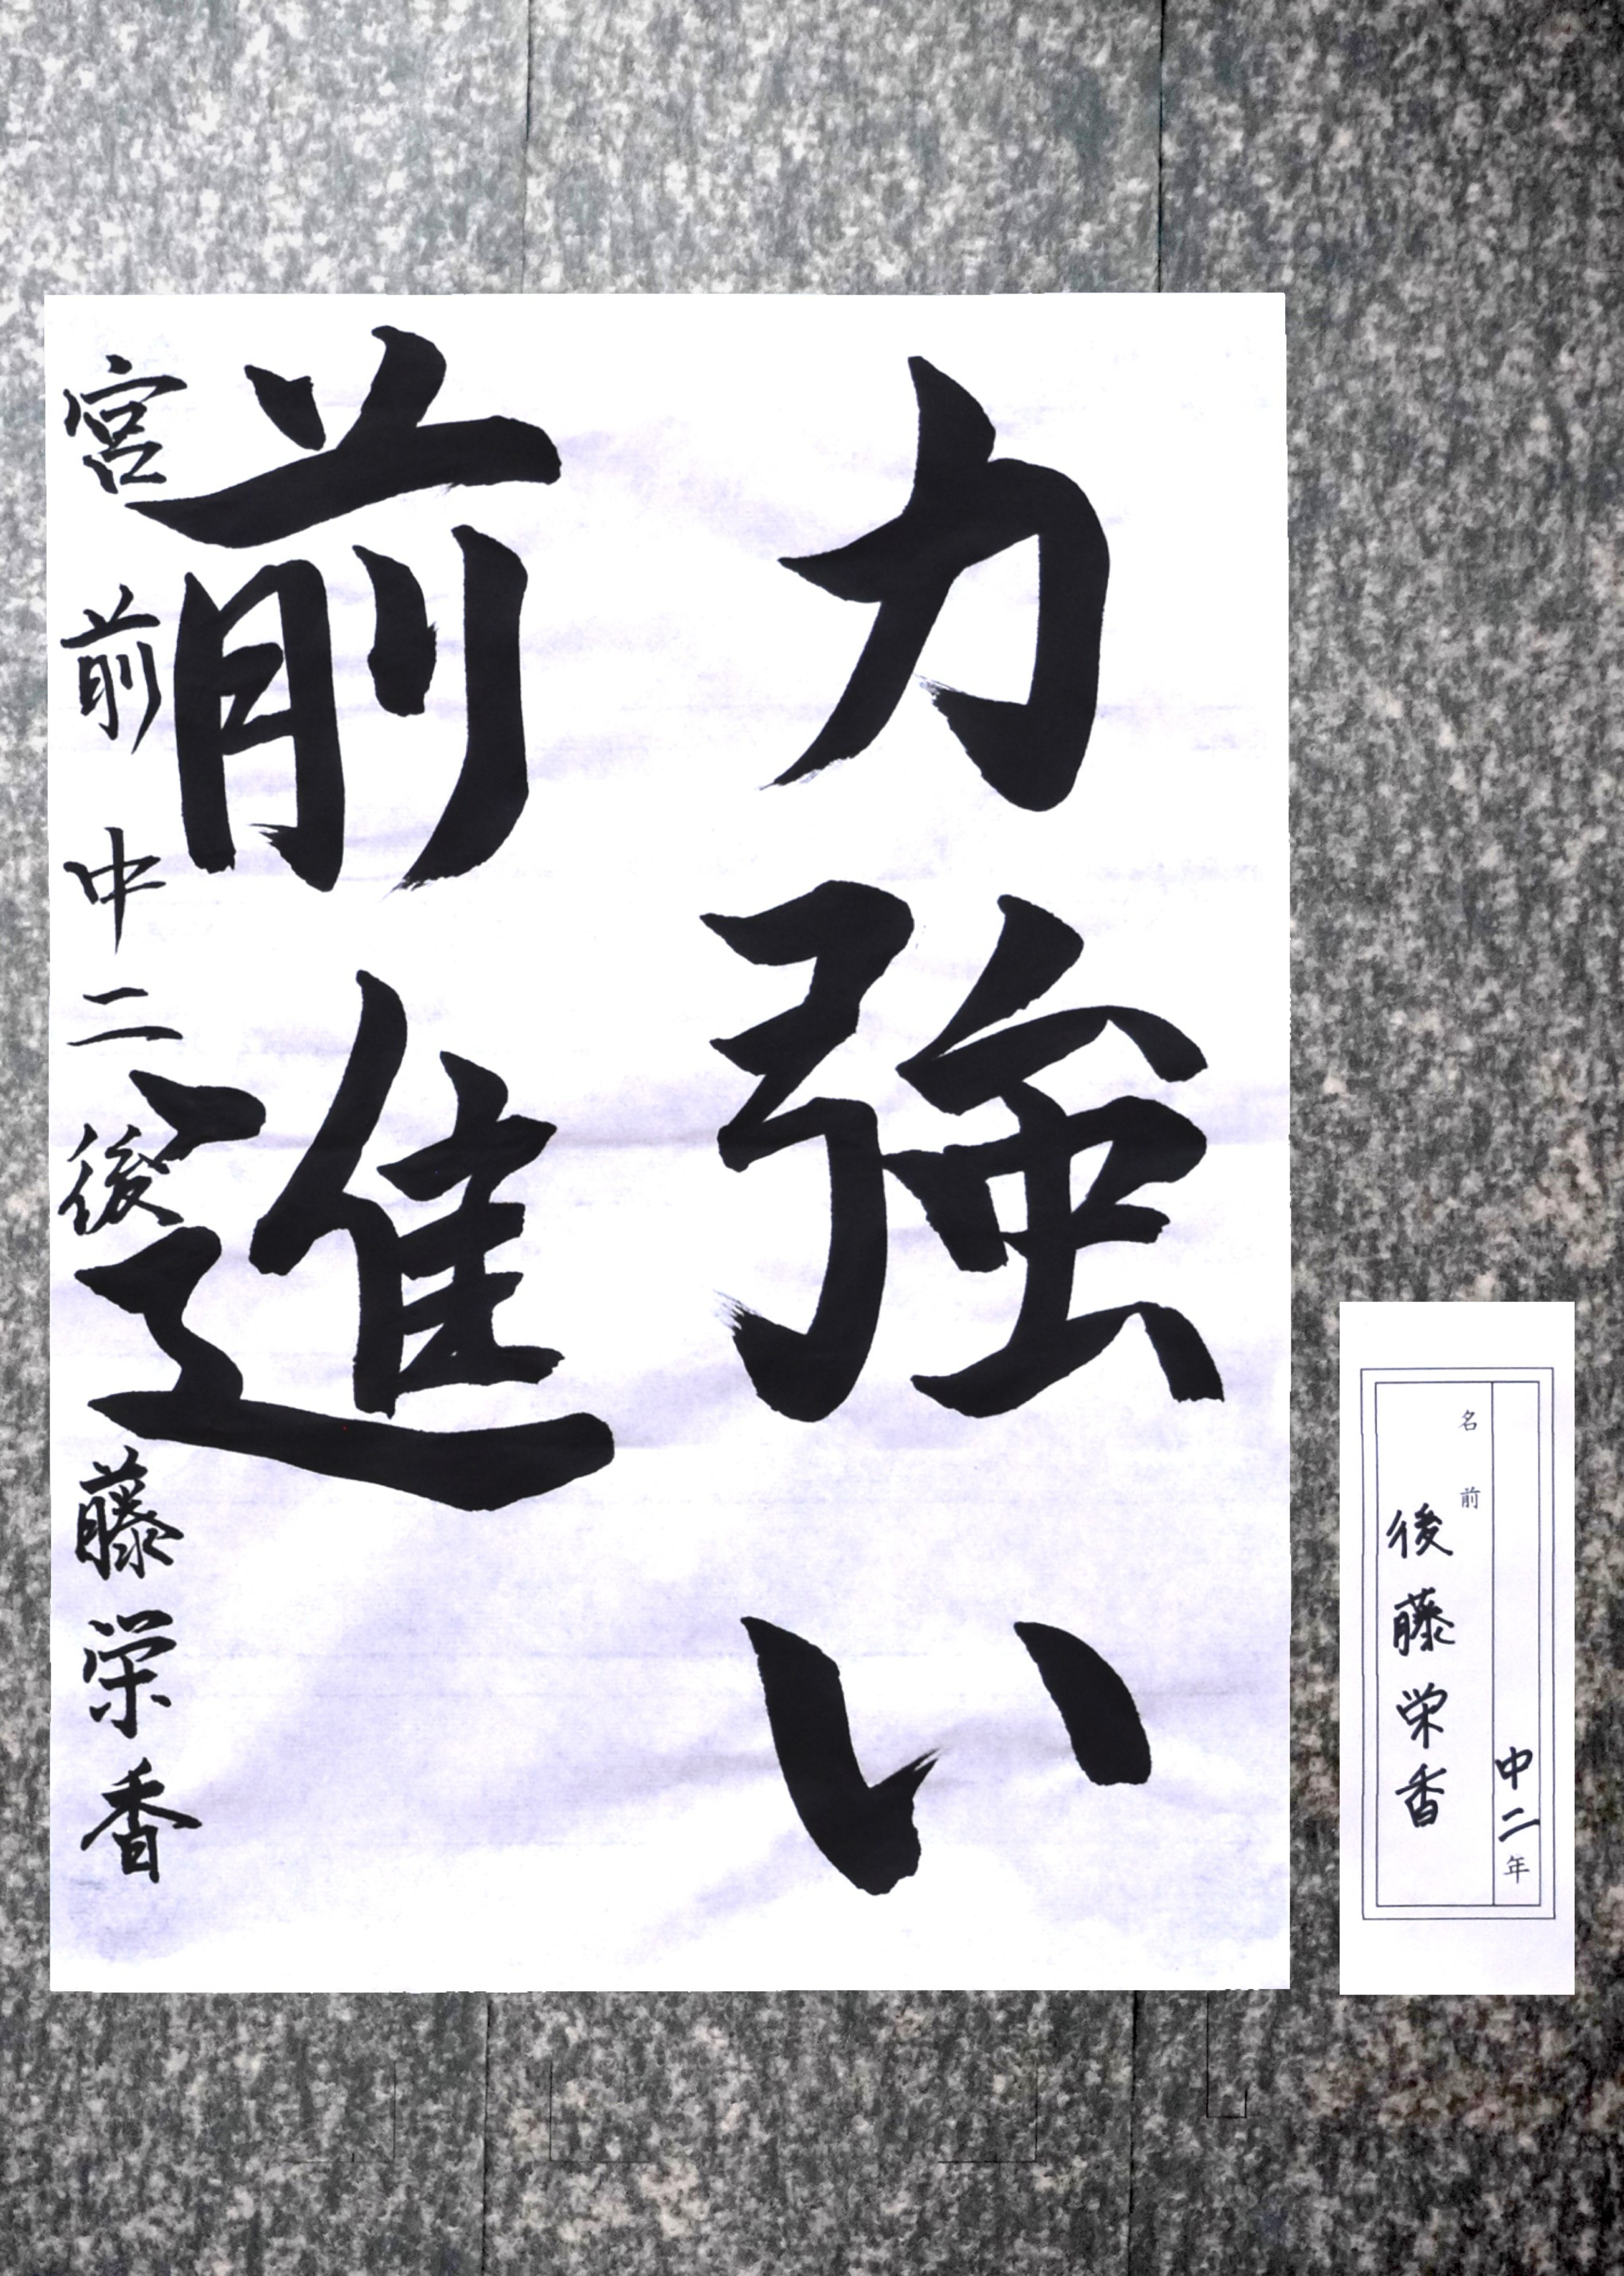 力強い
前進
宮前中二後藤栄香
中二年
名前
後藤栄香